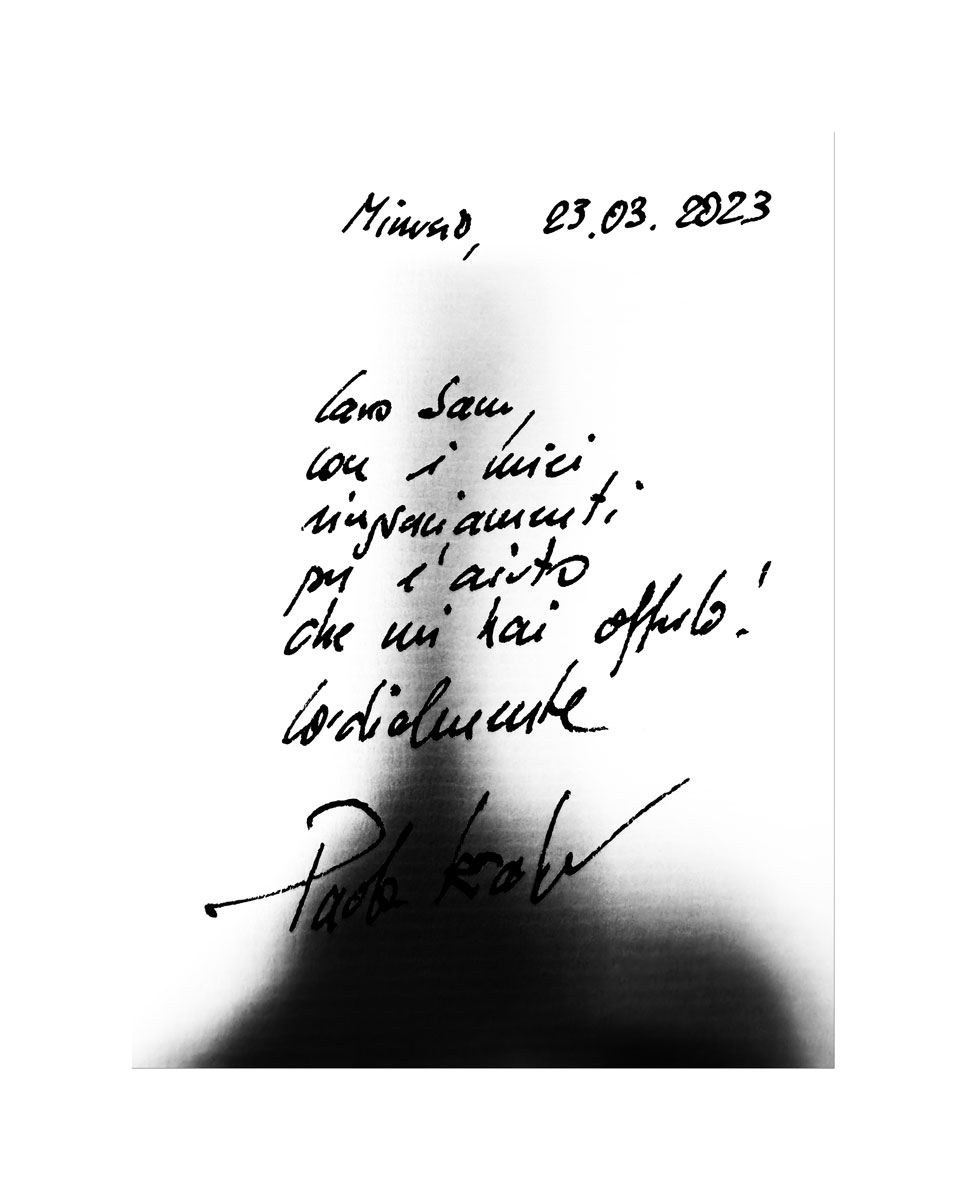 23.03.2023
Caro Sam,
con i miei
ringraziamenti
per l'aiuto
che mi hai offerto!
Cordialmente
Paola